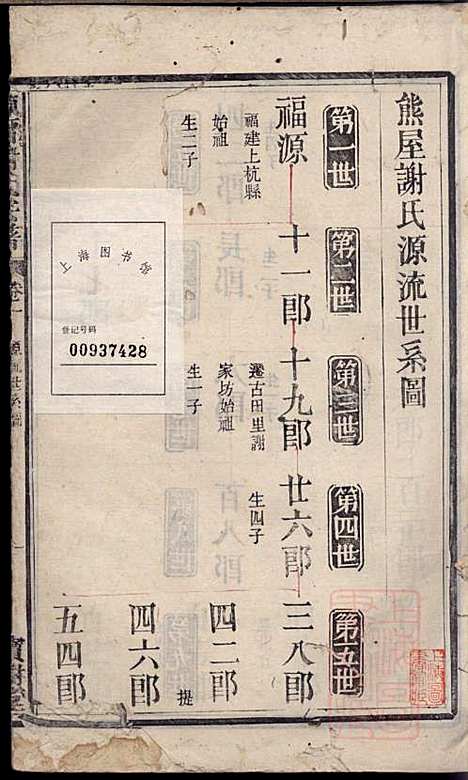 熊屋謝氏源流世系圖
第一世
第二世
第三世
第四世
第五世
福源
十一郎
十九郎
廿六郎
三八郎
福建上杭縣
始祖
生二子
遷古田里謝
家坊始祖
生一子
生四子
四二郎
四六郎
五四郎
提
登记号码
00937428
卷一
源流世系圖
寶樹堂